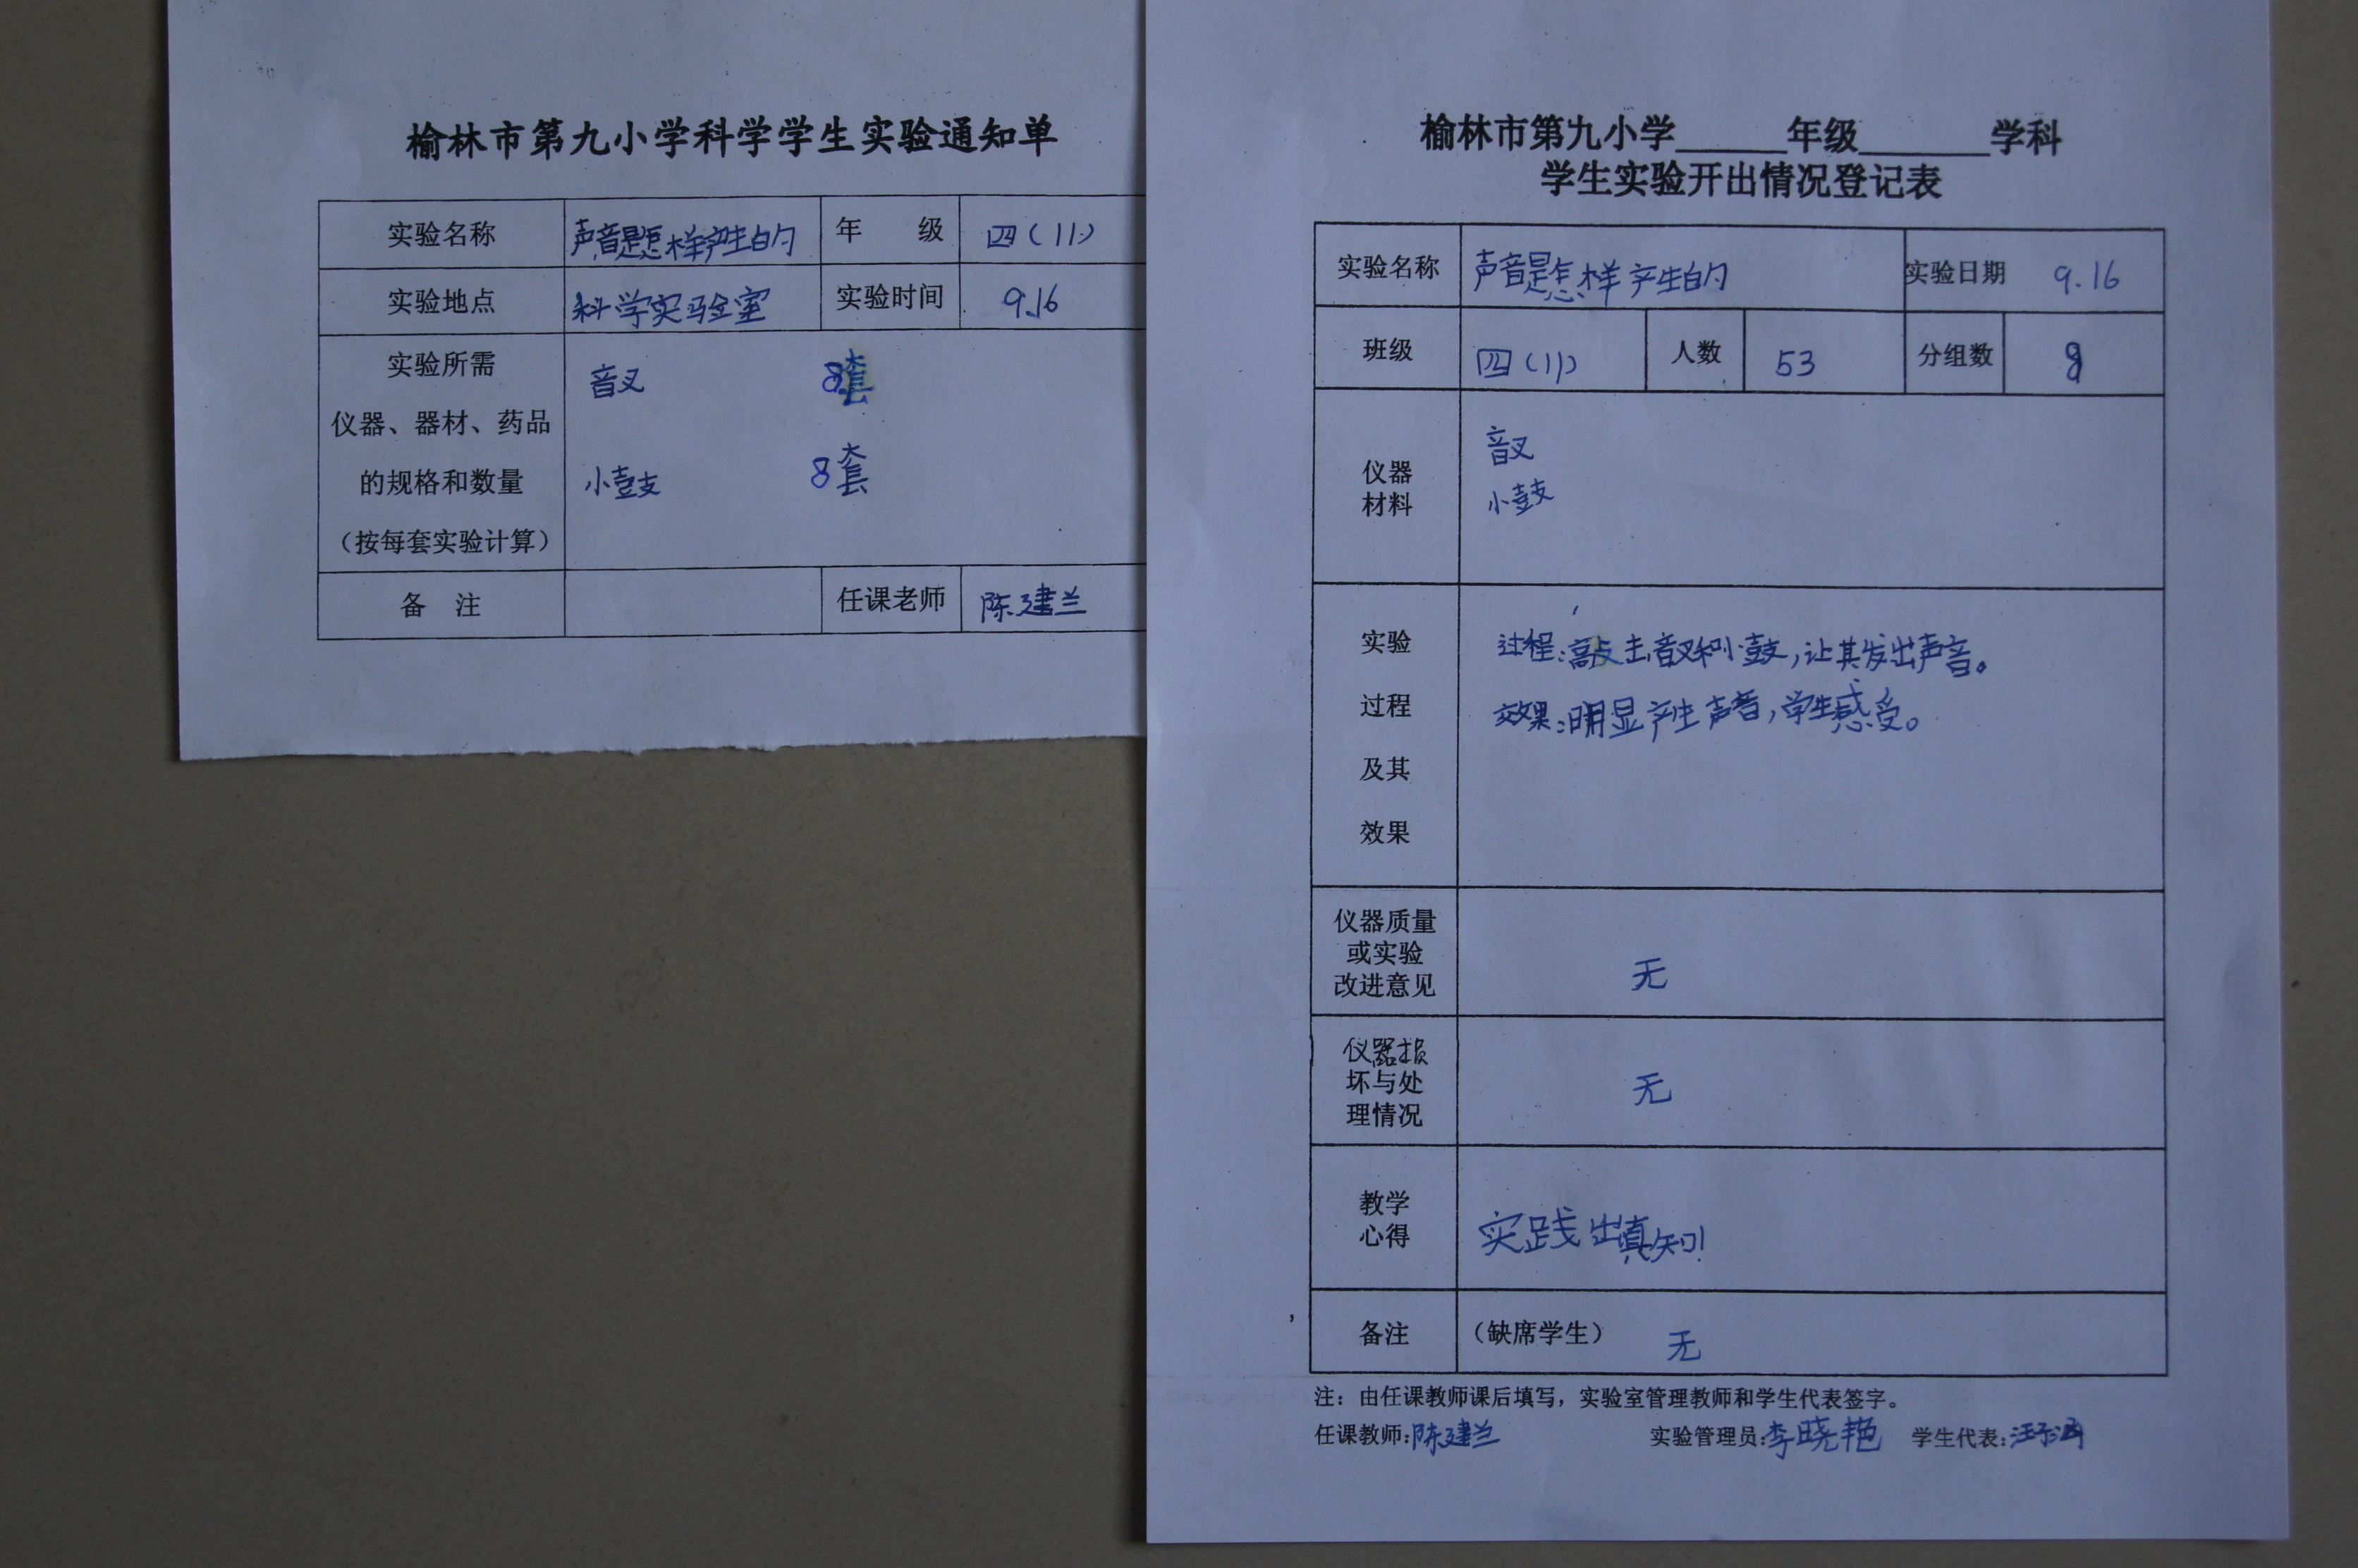 榆林市第九小学科学学生实验通知单
实验名称 声音是怎样产生的 年 级 四(11)
实验地点 科学实验室 实验时间 9.16
实验所需
仪器、器材、药品
的规格和数量
(按每套实验计算)
音叉 8套
小鼓 8套
备 注 任课老师 陈建兰
榆林市第九小学______年级_______学科
学生实验开出情况登记表
实验名称 声音是怎样产生的 实验日期 9.16
班级 四(11) 人数 53 分组数 8
仪器
材料
音叉
小鼓
实验
过程
及其
效果
过程:敲击音叉和小鼓,让其发出声音。
效果:明显产生声音,学生感受。
仪器质量
或实验
改进意见
无
仪器损
坏与处
理情况
无
教学
心得
实践出真知!
备注 (缺席学生) 无
注:由任课教师课后填写,实验室管理教师和学生代表签字。
任课教师:陈建兰 实验管理员:李晓艳 学生代表: